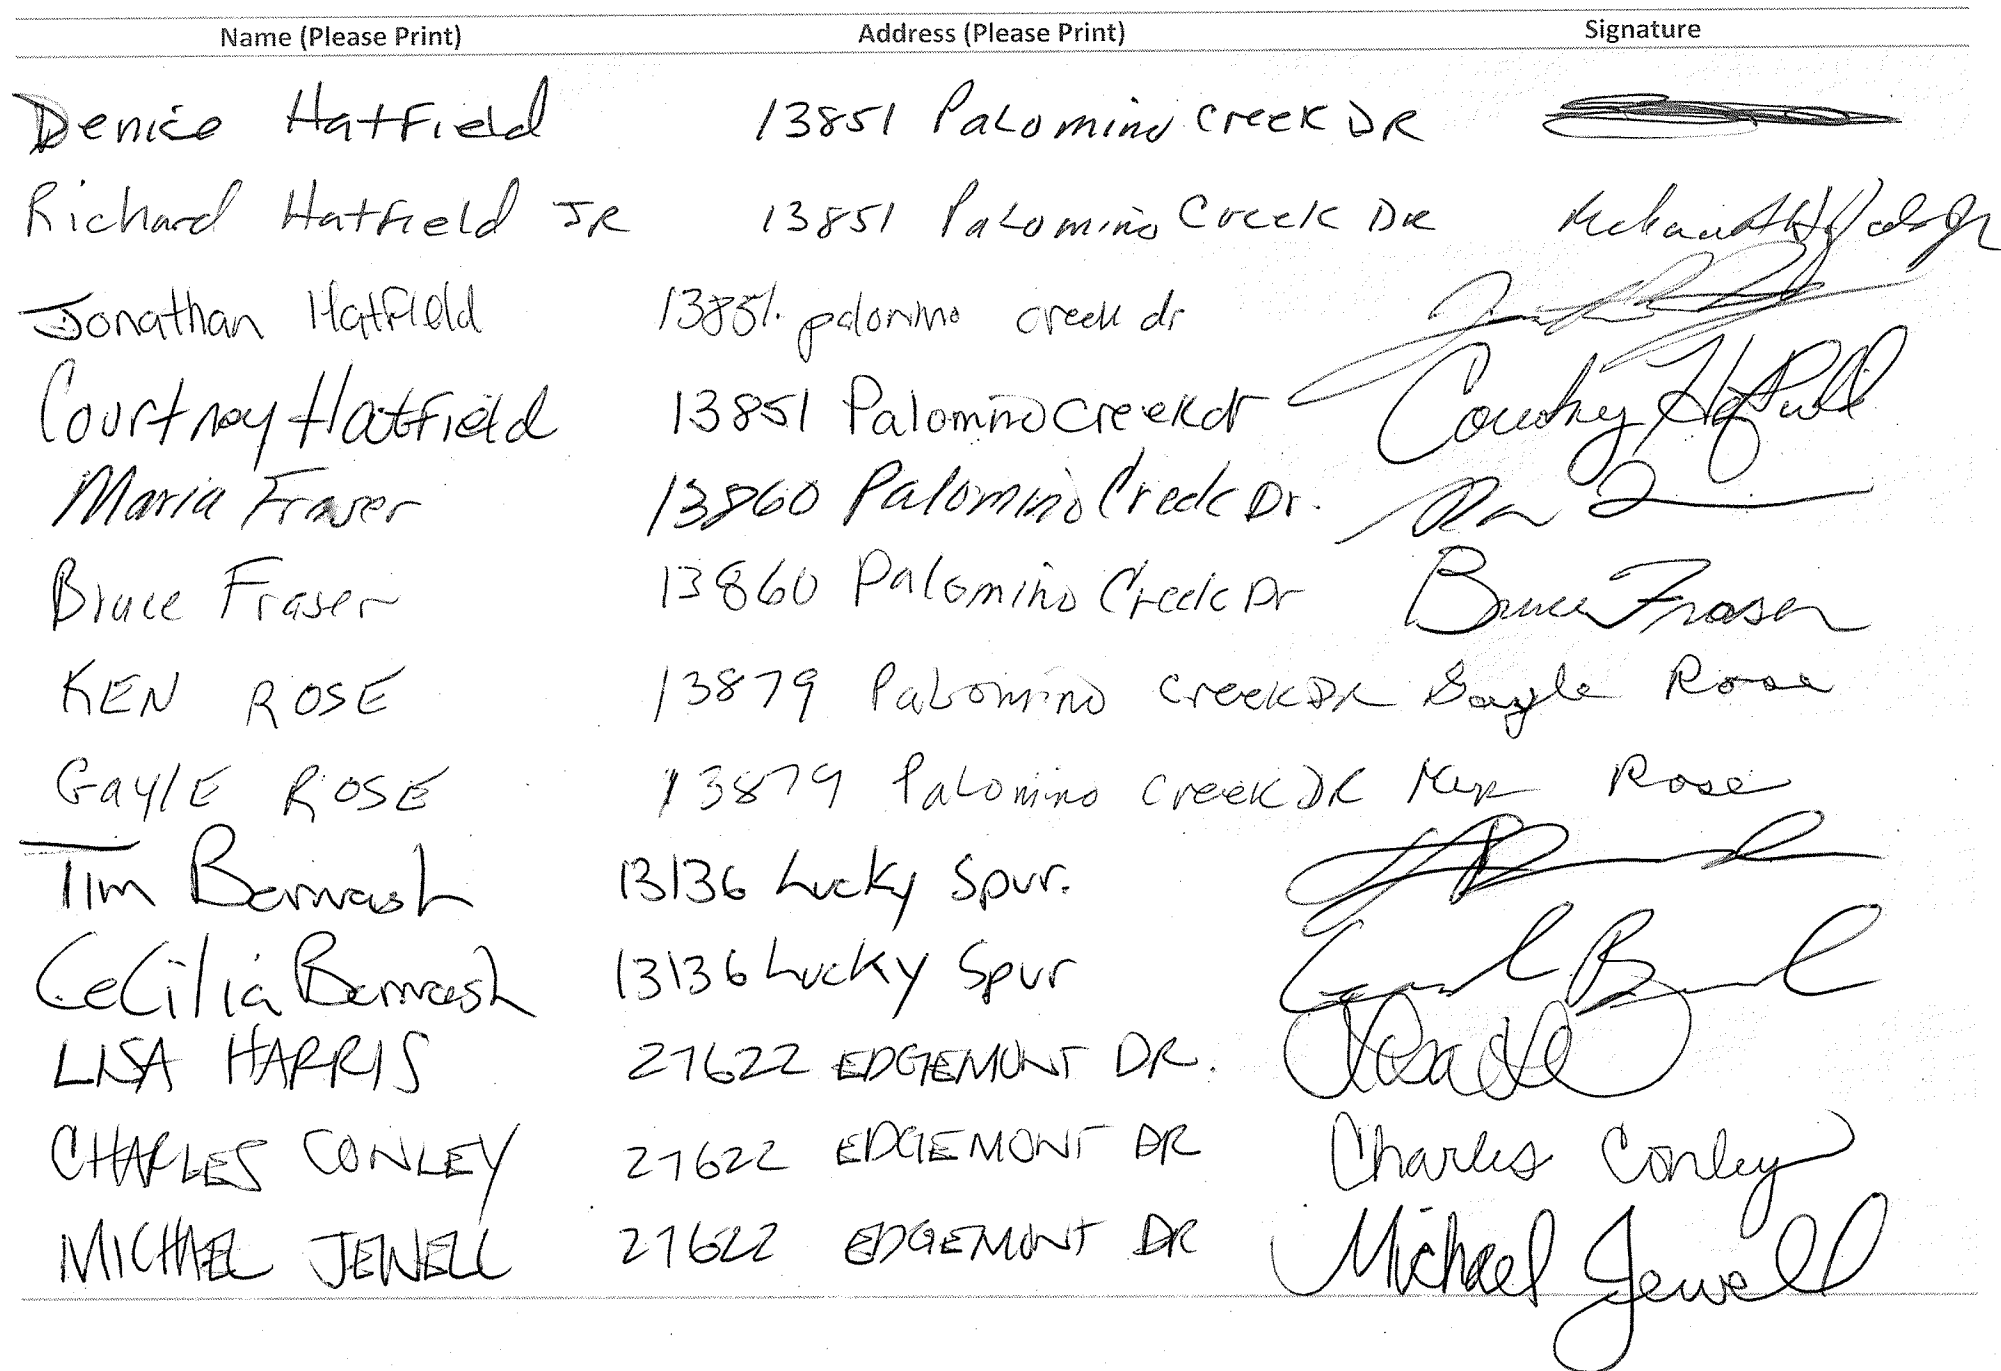 Name (Please Print) Address (Please Print) Signature
Denice Hatfield 13851 Palomino Creek DR
Richard Hatfield JR 13851 Palomino Creek DR
Jonathan Hatfield 13851 palomino creek dr
Courtney Hatfield 13851 Palomino Creek dr Courtney Hatfield
Maria Fraser 13860 Palomino Creek Dr.
Bruce Fraser 13860 Palomino Creek Dr Bruce Fraser
KEN ROSE 13879 Palomino Creek DR Gayle Rose
GaylE ROSE 13879 Palomino Creek DR Rose
Tim 13136 Lucky Spur.
CeCilia 13136 Lucky Spur
LISA HARRIS 27622 EDGEMONT DR.
CHARLES CONLEY 27622 EDGEMONT DR Charles Conley
MICHAEL JEWELL 27622 EDGEMONT DR Michael Jewell